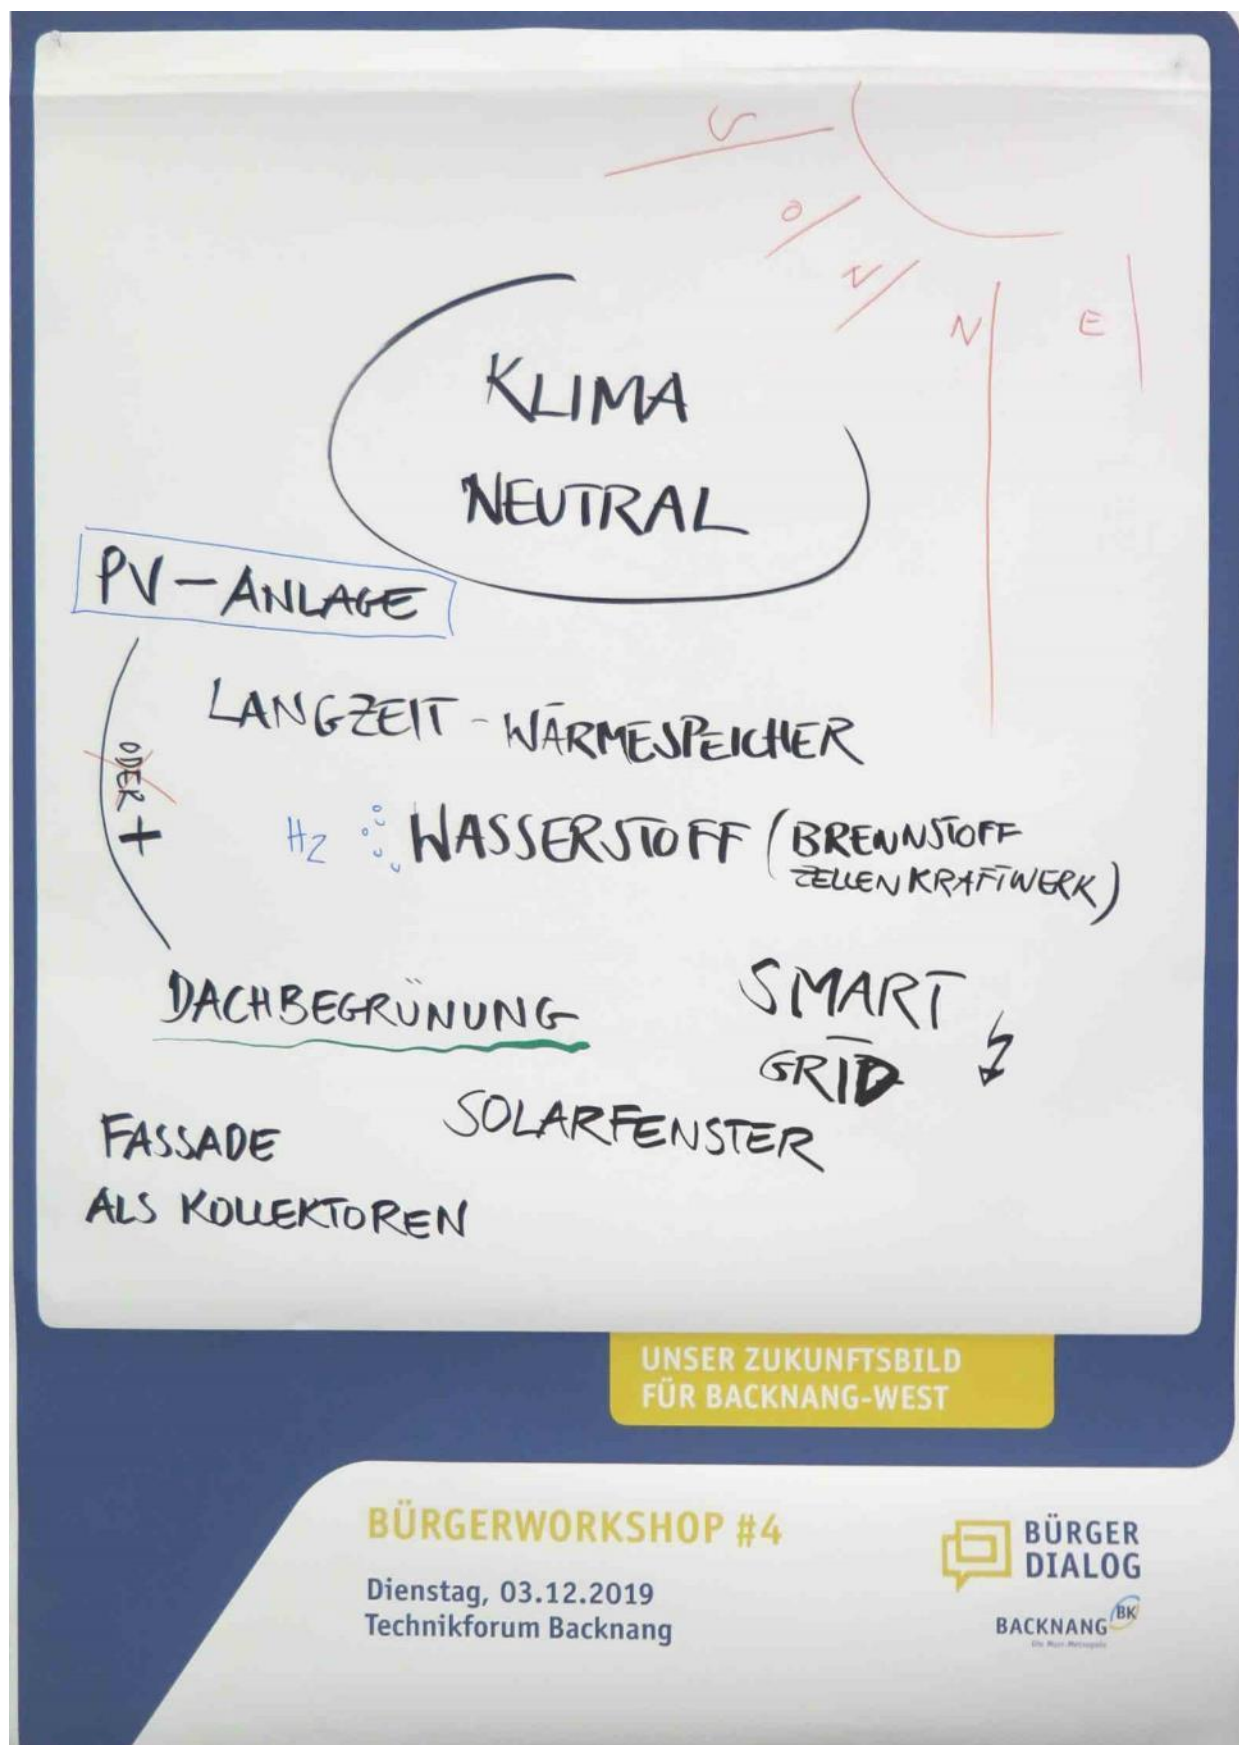 S
O
N
N
E
KLIMA
NEUTRAL
PV-ANLAGE
LANGZEIT-WÄRMESPEICHER
ODER +
H2 WASSERSTOFF (BRENNSTOFF
ZELLENKRAFTWERK)
DACHBEGRÜNUNG
SMART
GRID
SOLARFENSTER
FASSADE
ALS KOLLEKTOREN
UNSER ZUKUNFTSBILD
FÜR BACKNANG-WEST
BÜRGERWORKSHOP #4
Dienstag, 03.12.2019
Technikforum Backnang
BÜRGER
DIALOG
BACKNANG BK
Die Murr-Metropole